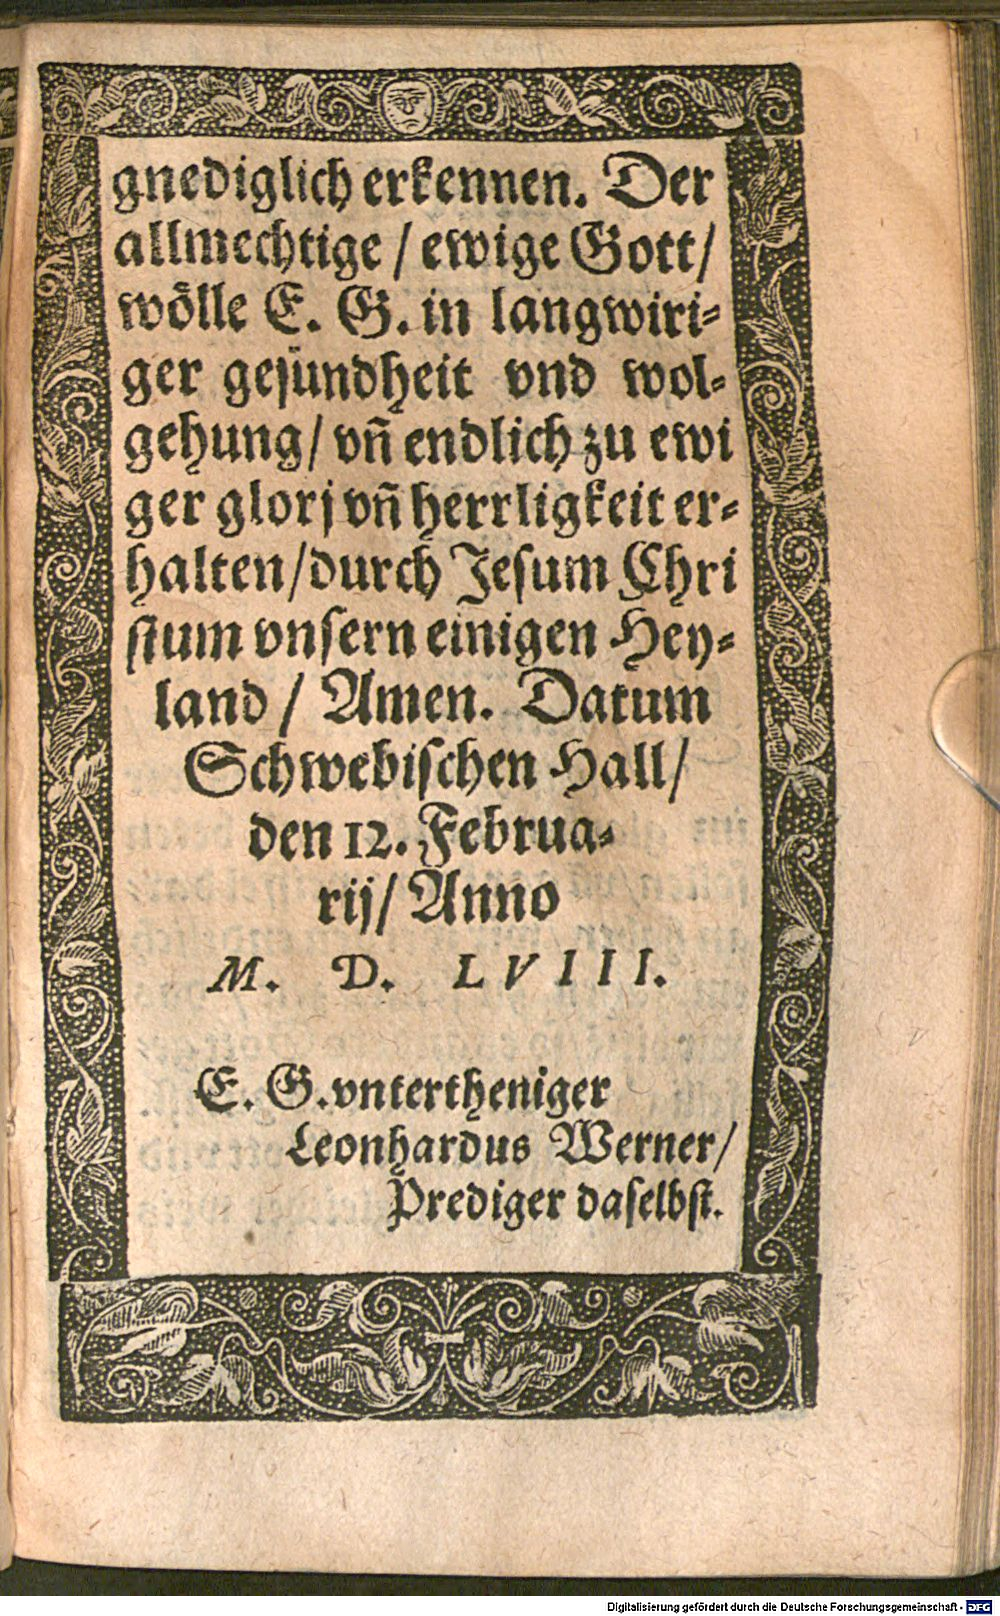 gnediglich erkennen. Der
allmechtige / ewige Gott /
wölle E. G. in langwiri-
ger gesundheit vnd wol-
gehung / vñ endlich zu ewi
ger glorj vñ herrligkeit er-
halten / durch Jesum Chri
stum vnsern einigen Hey-
land / Amen. Datum
Schwebischen Hall /
den 12. Februa-
rij / Anno
M. D. LVIII.
E. G. vntertheniger
Leonhardus Werner /
Prediger daselbst.
Digitalisierung gefördert durch die Deutsche Forschungsgemeinschaft - DFG